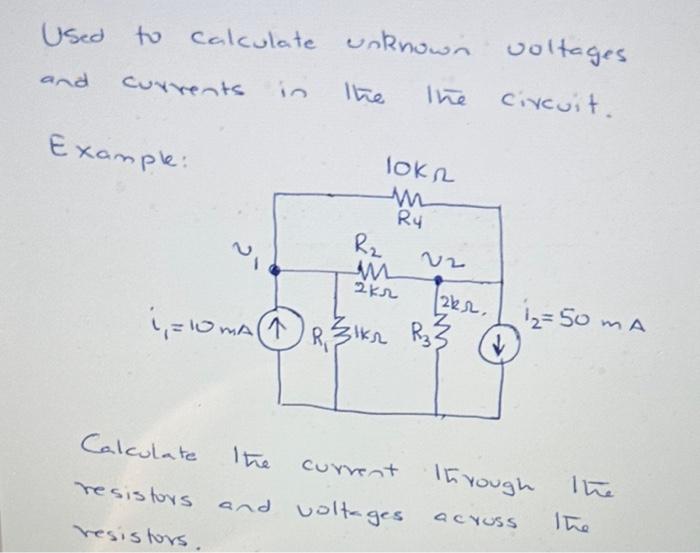 Used to calculate unknown voltages
and currents in the the circuit.
Example:
10KΩ
R4
R2
v1
v2
2kΩ
2kΩ.
i1=10 mA
R1
1kΩ
R3
i2=50 mA
Calculate the current through the
resistors and voltages across the
resistors.